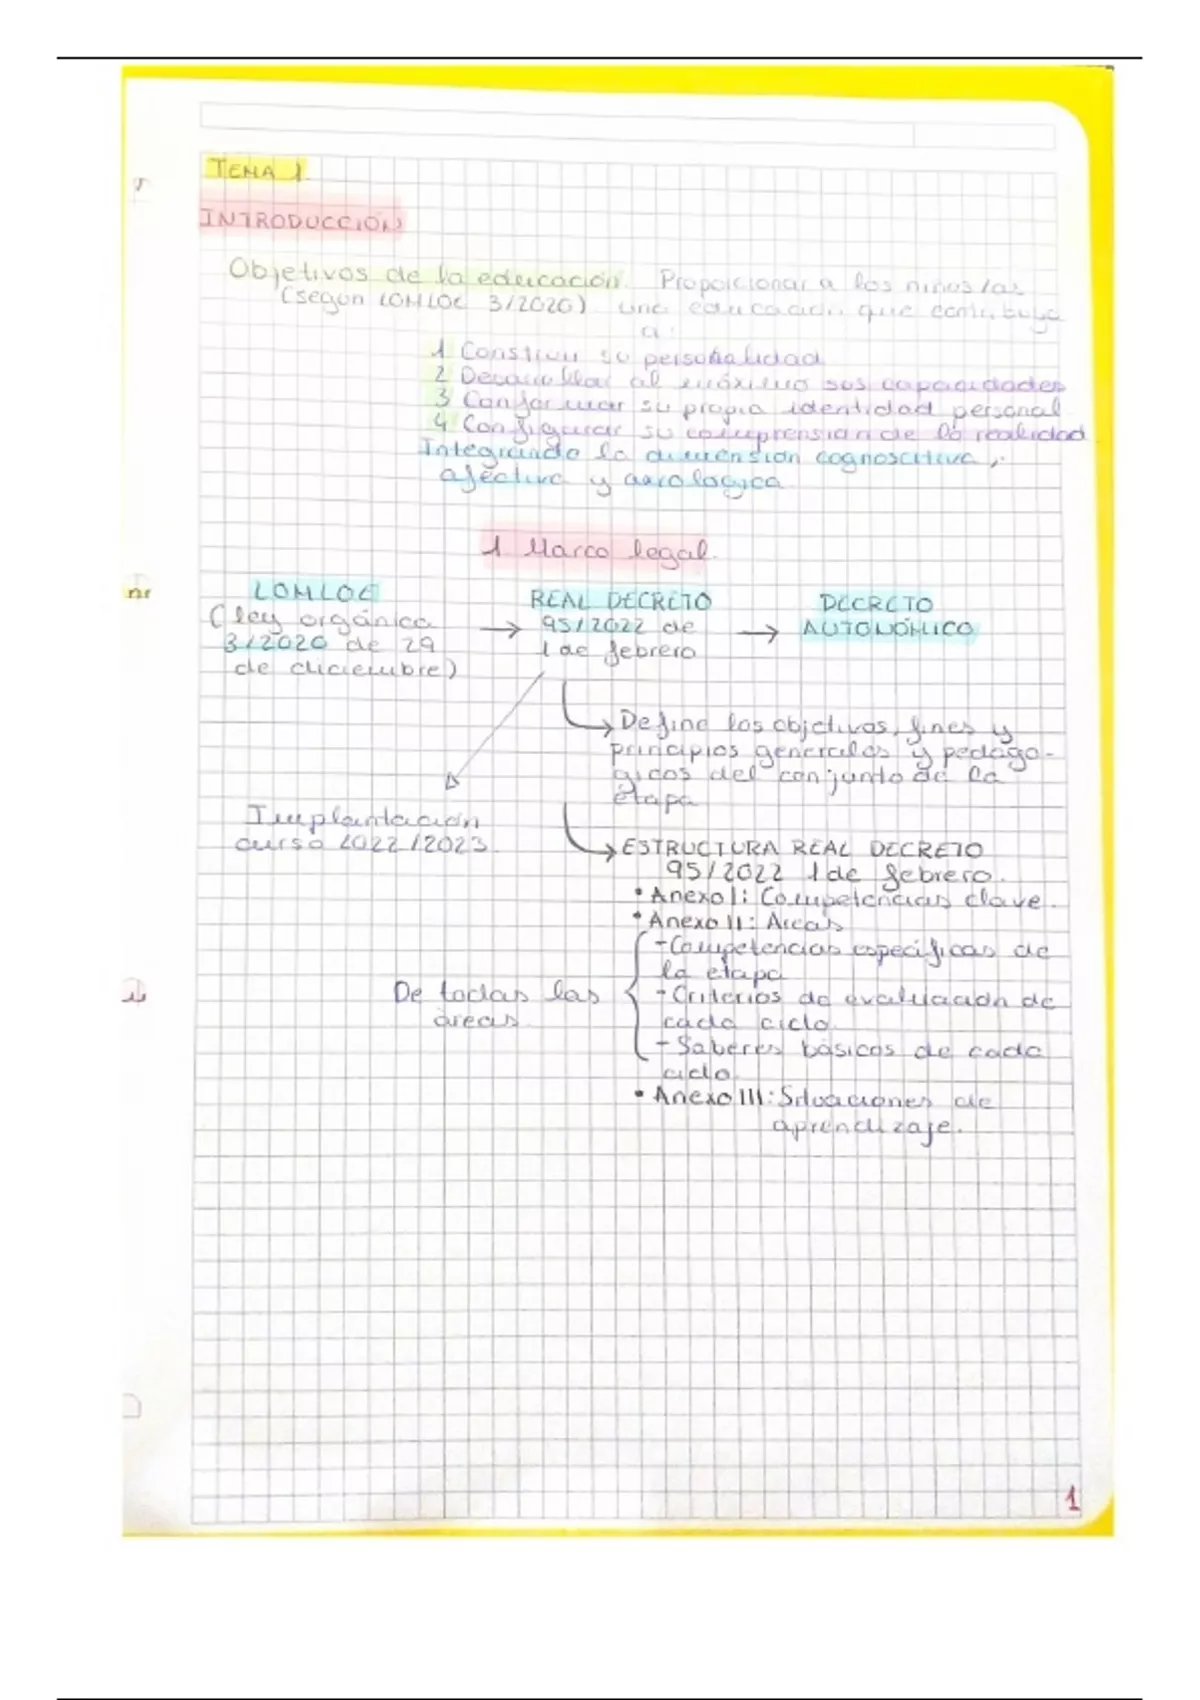 TEMA 1.
INTRODUCCIÓN
Objetivos de la educación. Proporcionar a los niños/as
(según LOMLOE 3/2020) una educación que contribuya
a:
1 Construir su personalidad
2 Desarrollar al máximo sus capacidades
3 Conformar su propia identidad personal
4 Configurar su comprensión de la realidad
Integrando la dimensión cognoscitiva,
afectiva y axiológica
1 Marco legal.
LOMLOE
(ley orgánica
3/2020 de 29
de diciembre)
→ REAL DECRETO
95/2022 de
1 de febrero
→ DECRETO
AUTONÓMICO
Define los objetivos, fines y
principios generales y pedagó-
gicos del conjunto de la
etapa
Implantación
curso 2022/2023.
ESTRUCTURA REAL DECRETO
95/2022 1 de febrero.
• Anexo I: Competencias clave.
• Anexo II: Áreas
De todas las
áreas
- Competencias específicas de
la etapa
- Criterios de evaluación de
cada ciclo.
- Saberes básicos de cada
ciclo.
• Anexo III: Situaciones de
aprendizaje.
1